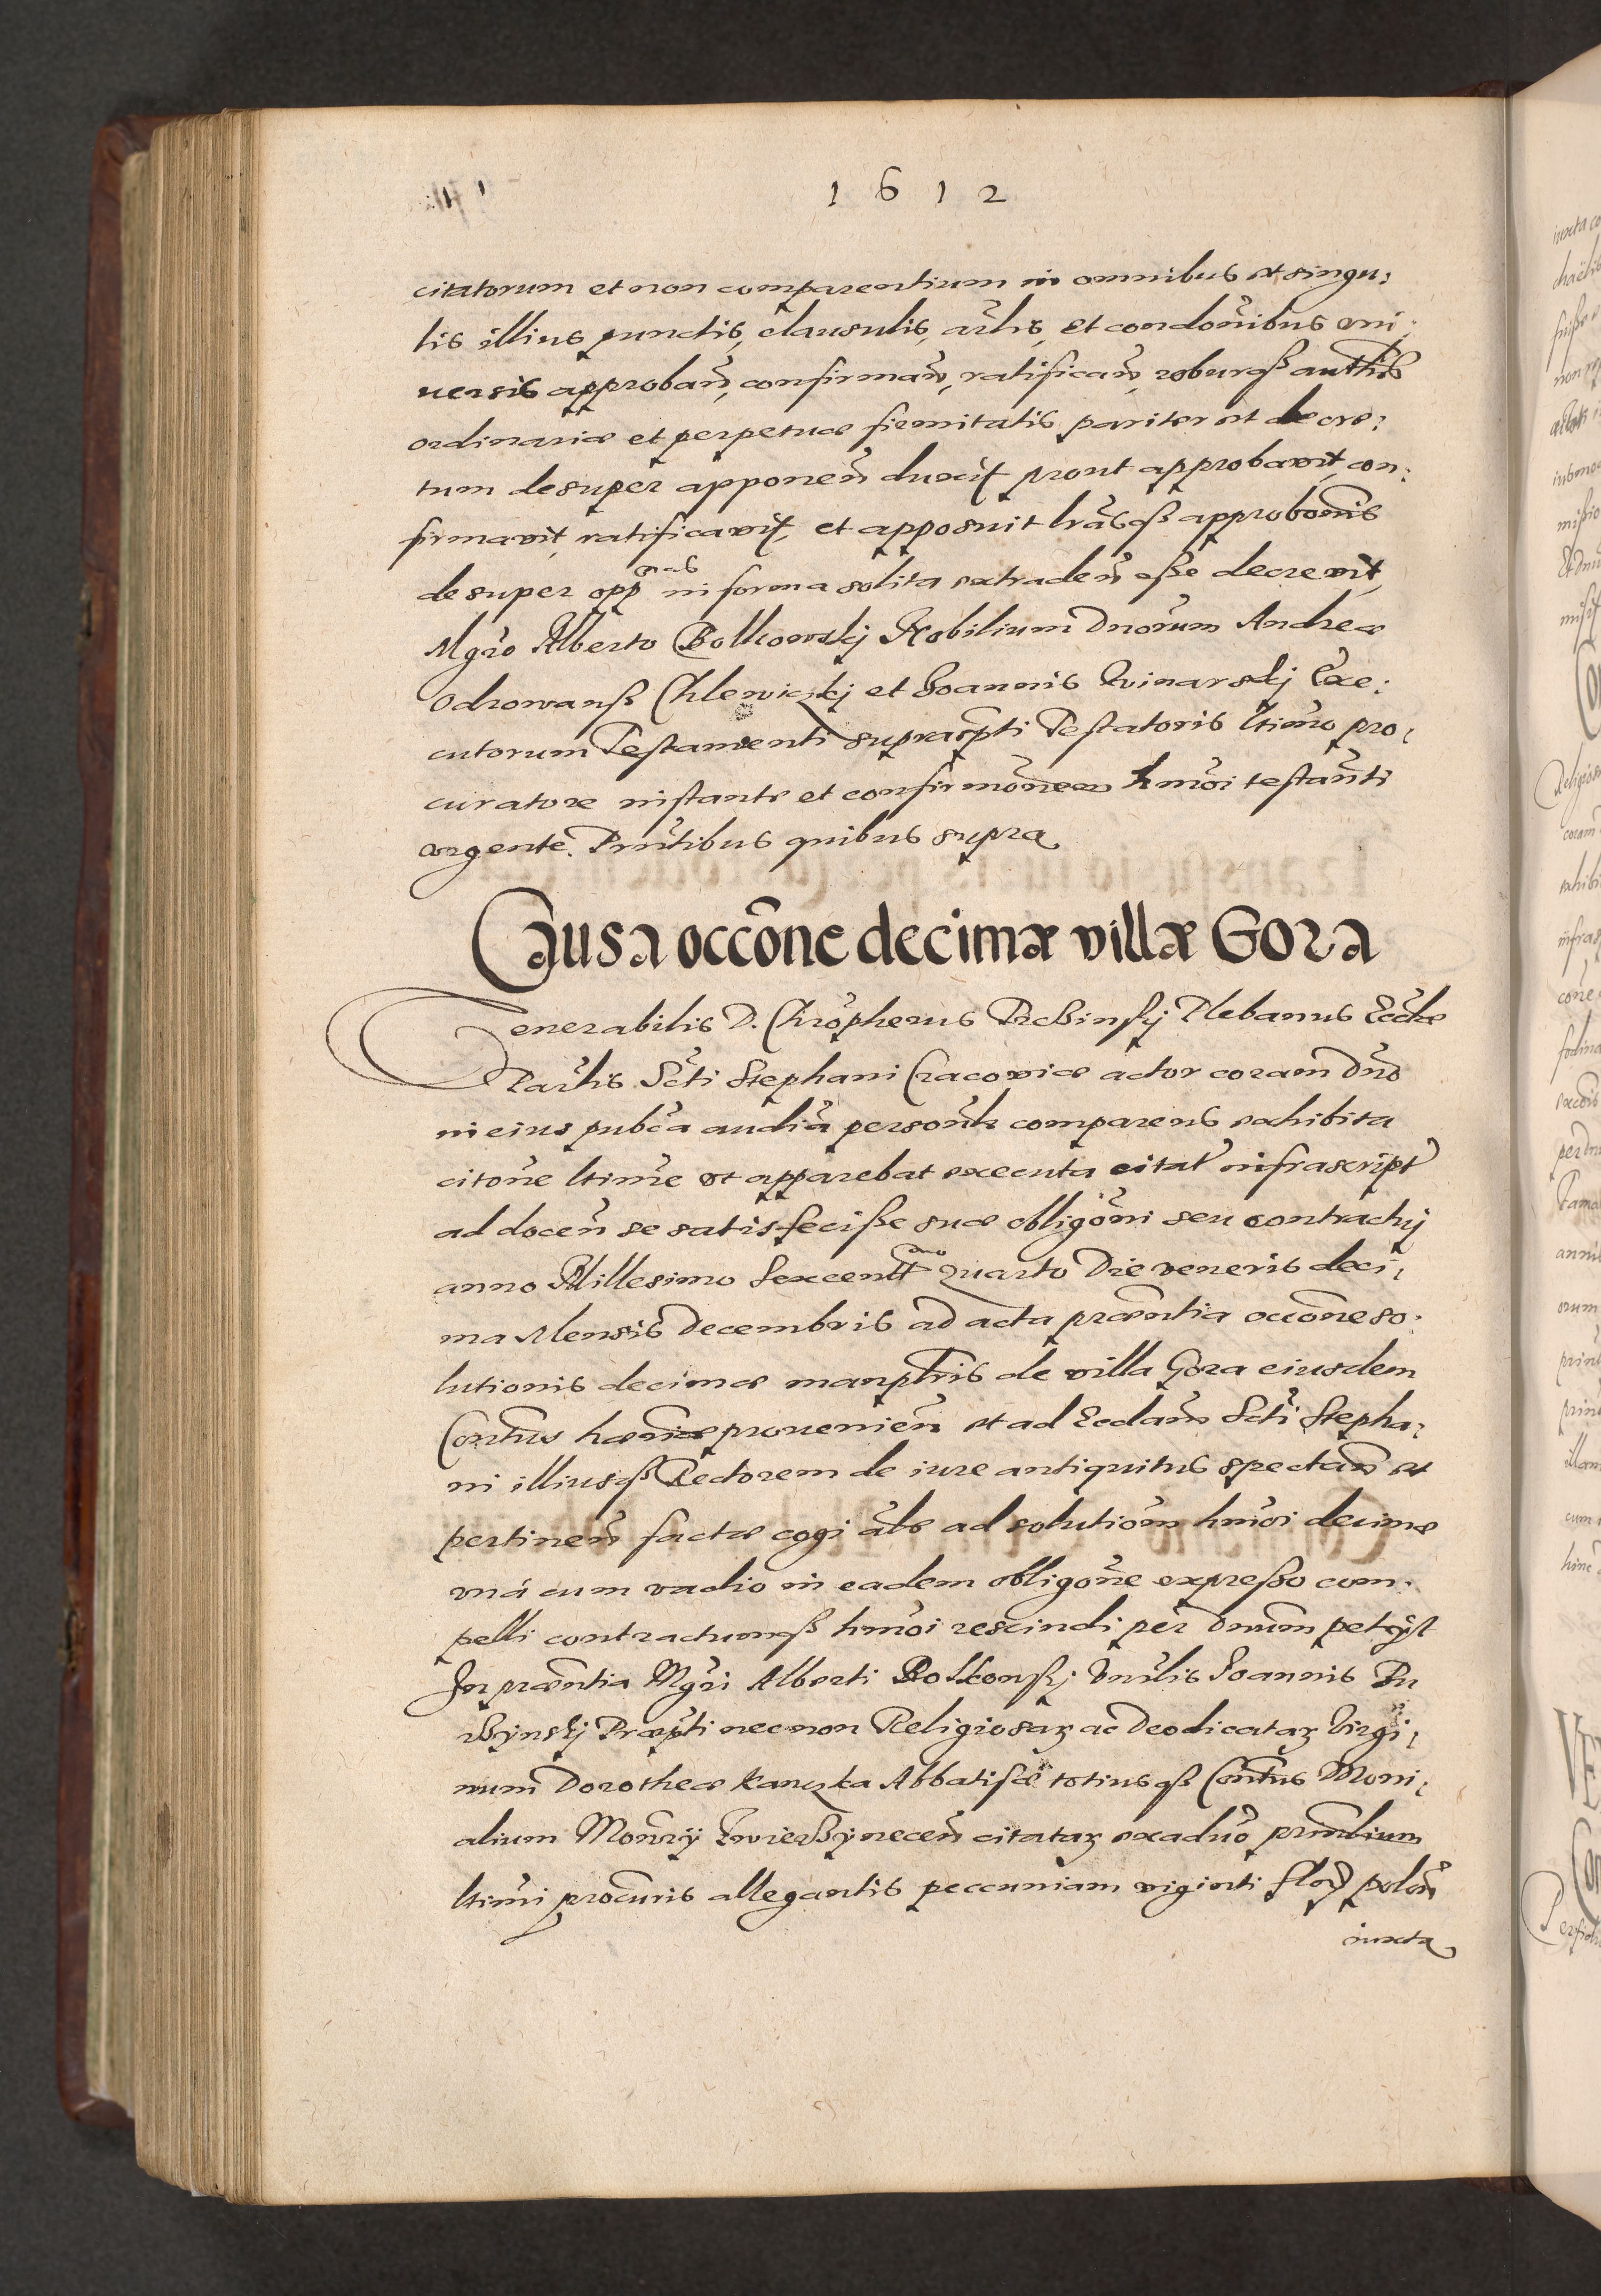 1612
citatorum et non comparentium in omnibus et singu:
lis illius punctis, clausulis, artlis, et condonibus uni:
uersis approban, confirman, ratifican, roburqß authtis
ordinariæ et perpetuæ firmitatis pariter et decre:
tum desuper apponen duxit prout approbavit, con:
firmavit, ratificavit, et apposuit lrasqß approbonis
desuper opp nas in forma solita extraden esse decrevit,
Mgro Alberto Bolkowskj Nobilium Dnorum Andreæ
Odrowanß Chlewiczkj et Joannis Winarskj Exe:
cutorum Testamenti suprascpti Testatoris ltimo pro:
curatore instante et confirmonem hmoi testanti
urgente. Pntibus quibus supra
Causa occone decimæ villæ Gora
Venerabilis D. Chrophorus Trzbinskj Plebanus Ecclæ
Parlis Scti Stephani Cracoviæ actor coram Dno
in eius pubca audia personlr comparens exhibita
citone ltime ut apparebat executa citat infrascript
ad docen se satisfecisse suæ obligoni seu contractuj
anno Millesimo Sexcentt mo Quarto Die veneris deci:
ma Mensis Decembris ad acta præntia occone so:
lutionis decimæ manuplris de villa Gora eiusdem
Contus hæniæ provenien et ad Ecclam Scti Stepha:
ni illiusqß Rectorem de iure antiquitus spectan et
pertinen factæ cogi als ad solutionem hmoi decimæ
una cum vadio in eadem obligone expresso com:
pelli contractumqß hmoi rescindi per Dnum petijt
In præntia Mgri Alberti Bolkonskj Dnulis Joannis
Præpti necnon Religiosarz ac Deodicatarz Virgi:
num Dorotheæ Kanczka Abbatissæ totiusqß Contus Moni:
alium Monrij Zwierzynecen citatarz ex aduo prmlium
ltimi procuris allegantis peccuniam viginti flor polon
iuxta